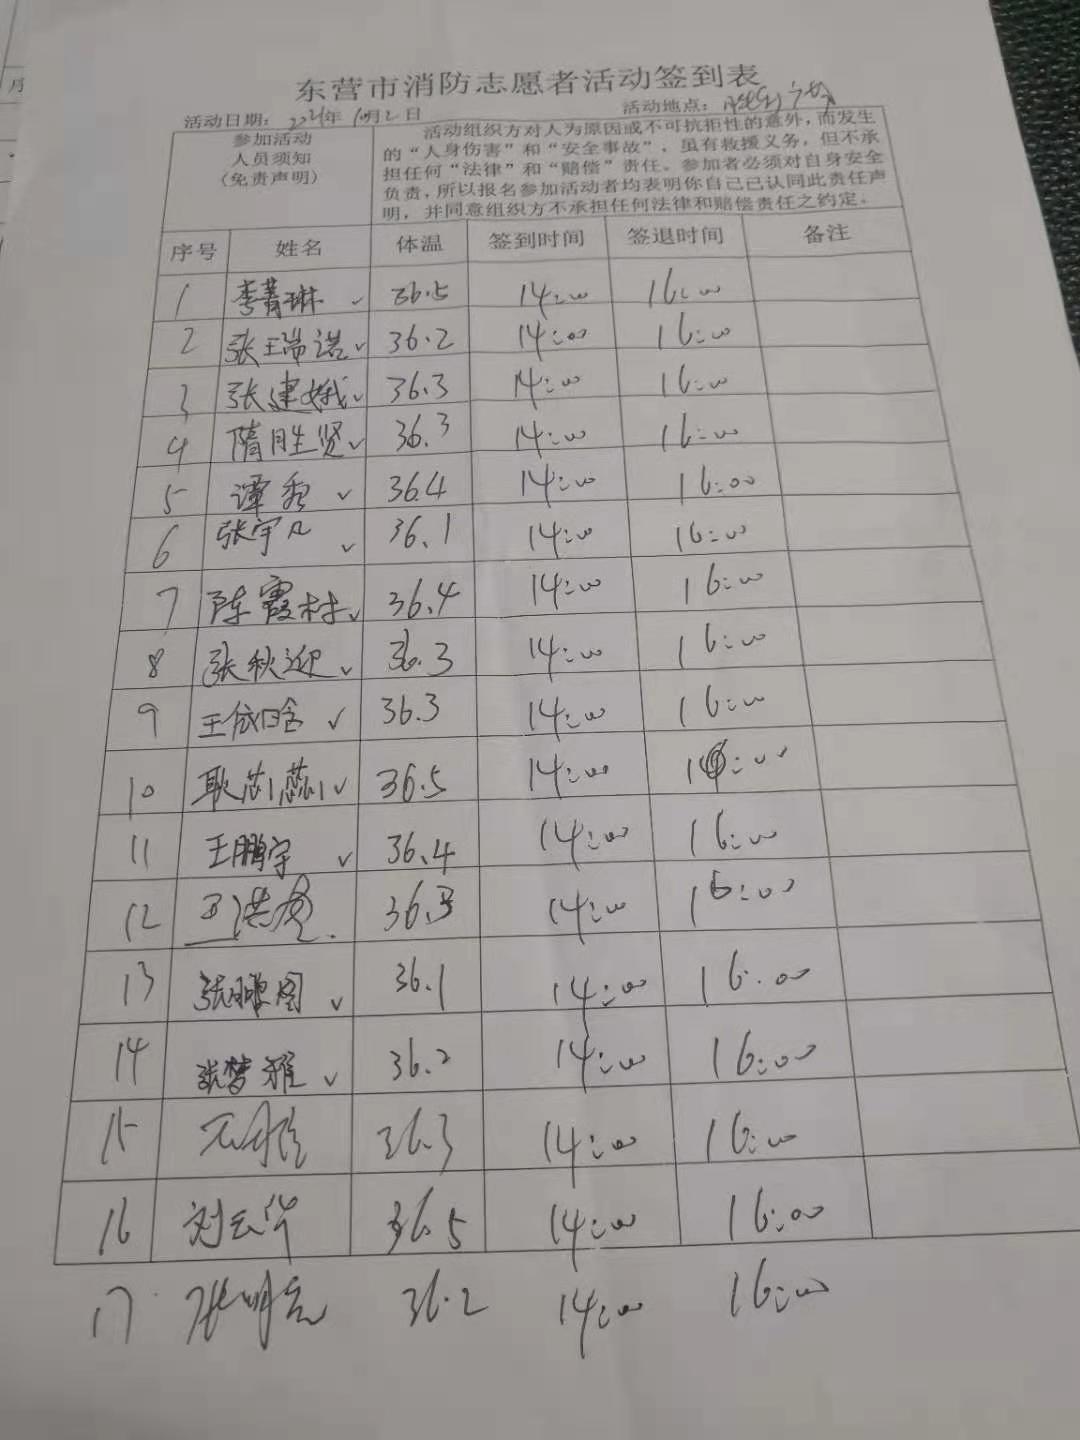 东营市消防志愿者活动签到表
活动日期：2021年10月2日 活动地点：胜利广场
参加活动
人员须知
（免责声明）
活动组织方对人为原因或不可抗拒性的意外，而发生
的“人身伤害”和“安全事故”，虽有救援义务，但不承
担任何“法律”和“赔偿”责任。参加者必须对自身安全
负责，所以报名参加活动者均表明你自己已认同此责任声
明，并同意组织方不承担任何法律和赔偿责任之约定。
序号 姓名 体温 签到时间 签退时间 备注
1 李菁琳 √ 36.5 14:00 16:00
2 张王瑞诺 √ 36.2 14:00 16:00
3 张建娥 √ 36.3 14:00 16:00
4 隋胜贤 √ 36.3 14:00 16:00
5 谭秀 √ 36.4 14:00 16:00
6 张宇凡 √ 36.1 14:00 16:00
7 陈霞林 √ 36.4 14:00 16:00
8 张秋迎 √ 36.3 14:00 16:00
9 王依晗 √ 36.3 14:00 16:00
10 耿芯蕊 √ 36.5 14:00 16:00
11 王鹏宇 √ 36.4 14:00 16:00
12 36.3 14:00 16:00
13 √ 36.1 14:00 16:00
14 张梦雅 √ 36.2 14:00 16:00
15 36.3 14:00 16:00
16 刘云华 36.5 14:00 16:00
17 张明亮 36.2 14:00 16:00
月